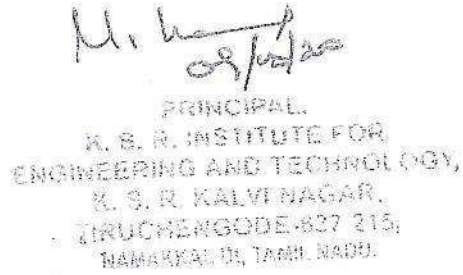 PRINCIPAL,
K. S. R. INSTITUTE FOR
ENGINEERING AND TECHNOLOGY,
K. S. R. KALVI NAGAR,
TIRUCHENGODE-637 215,
NAMAKKAL Dt, TAMIL NADU.